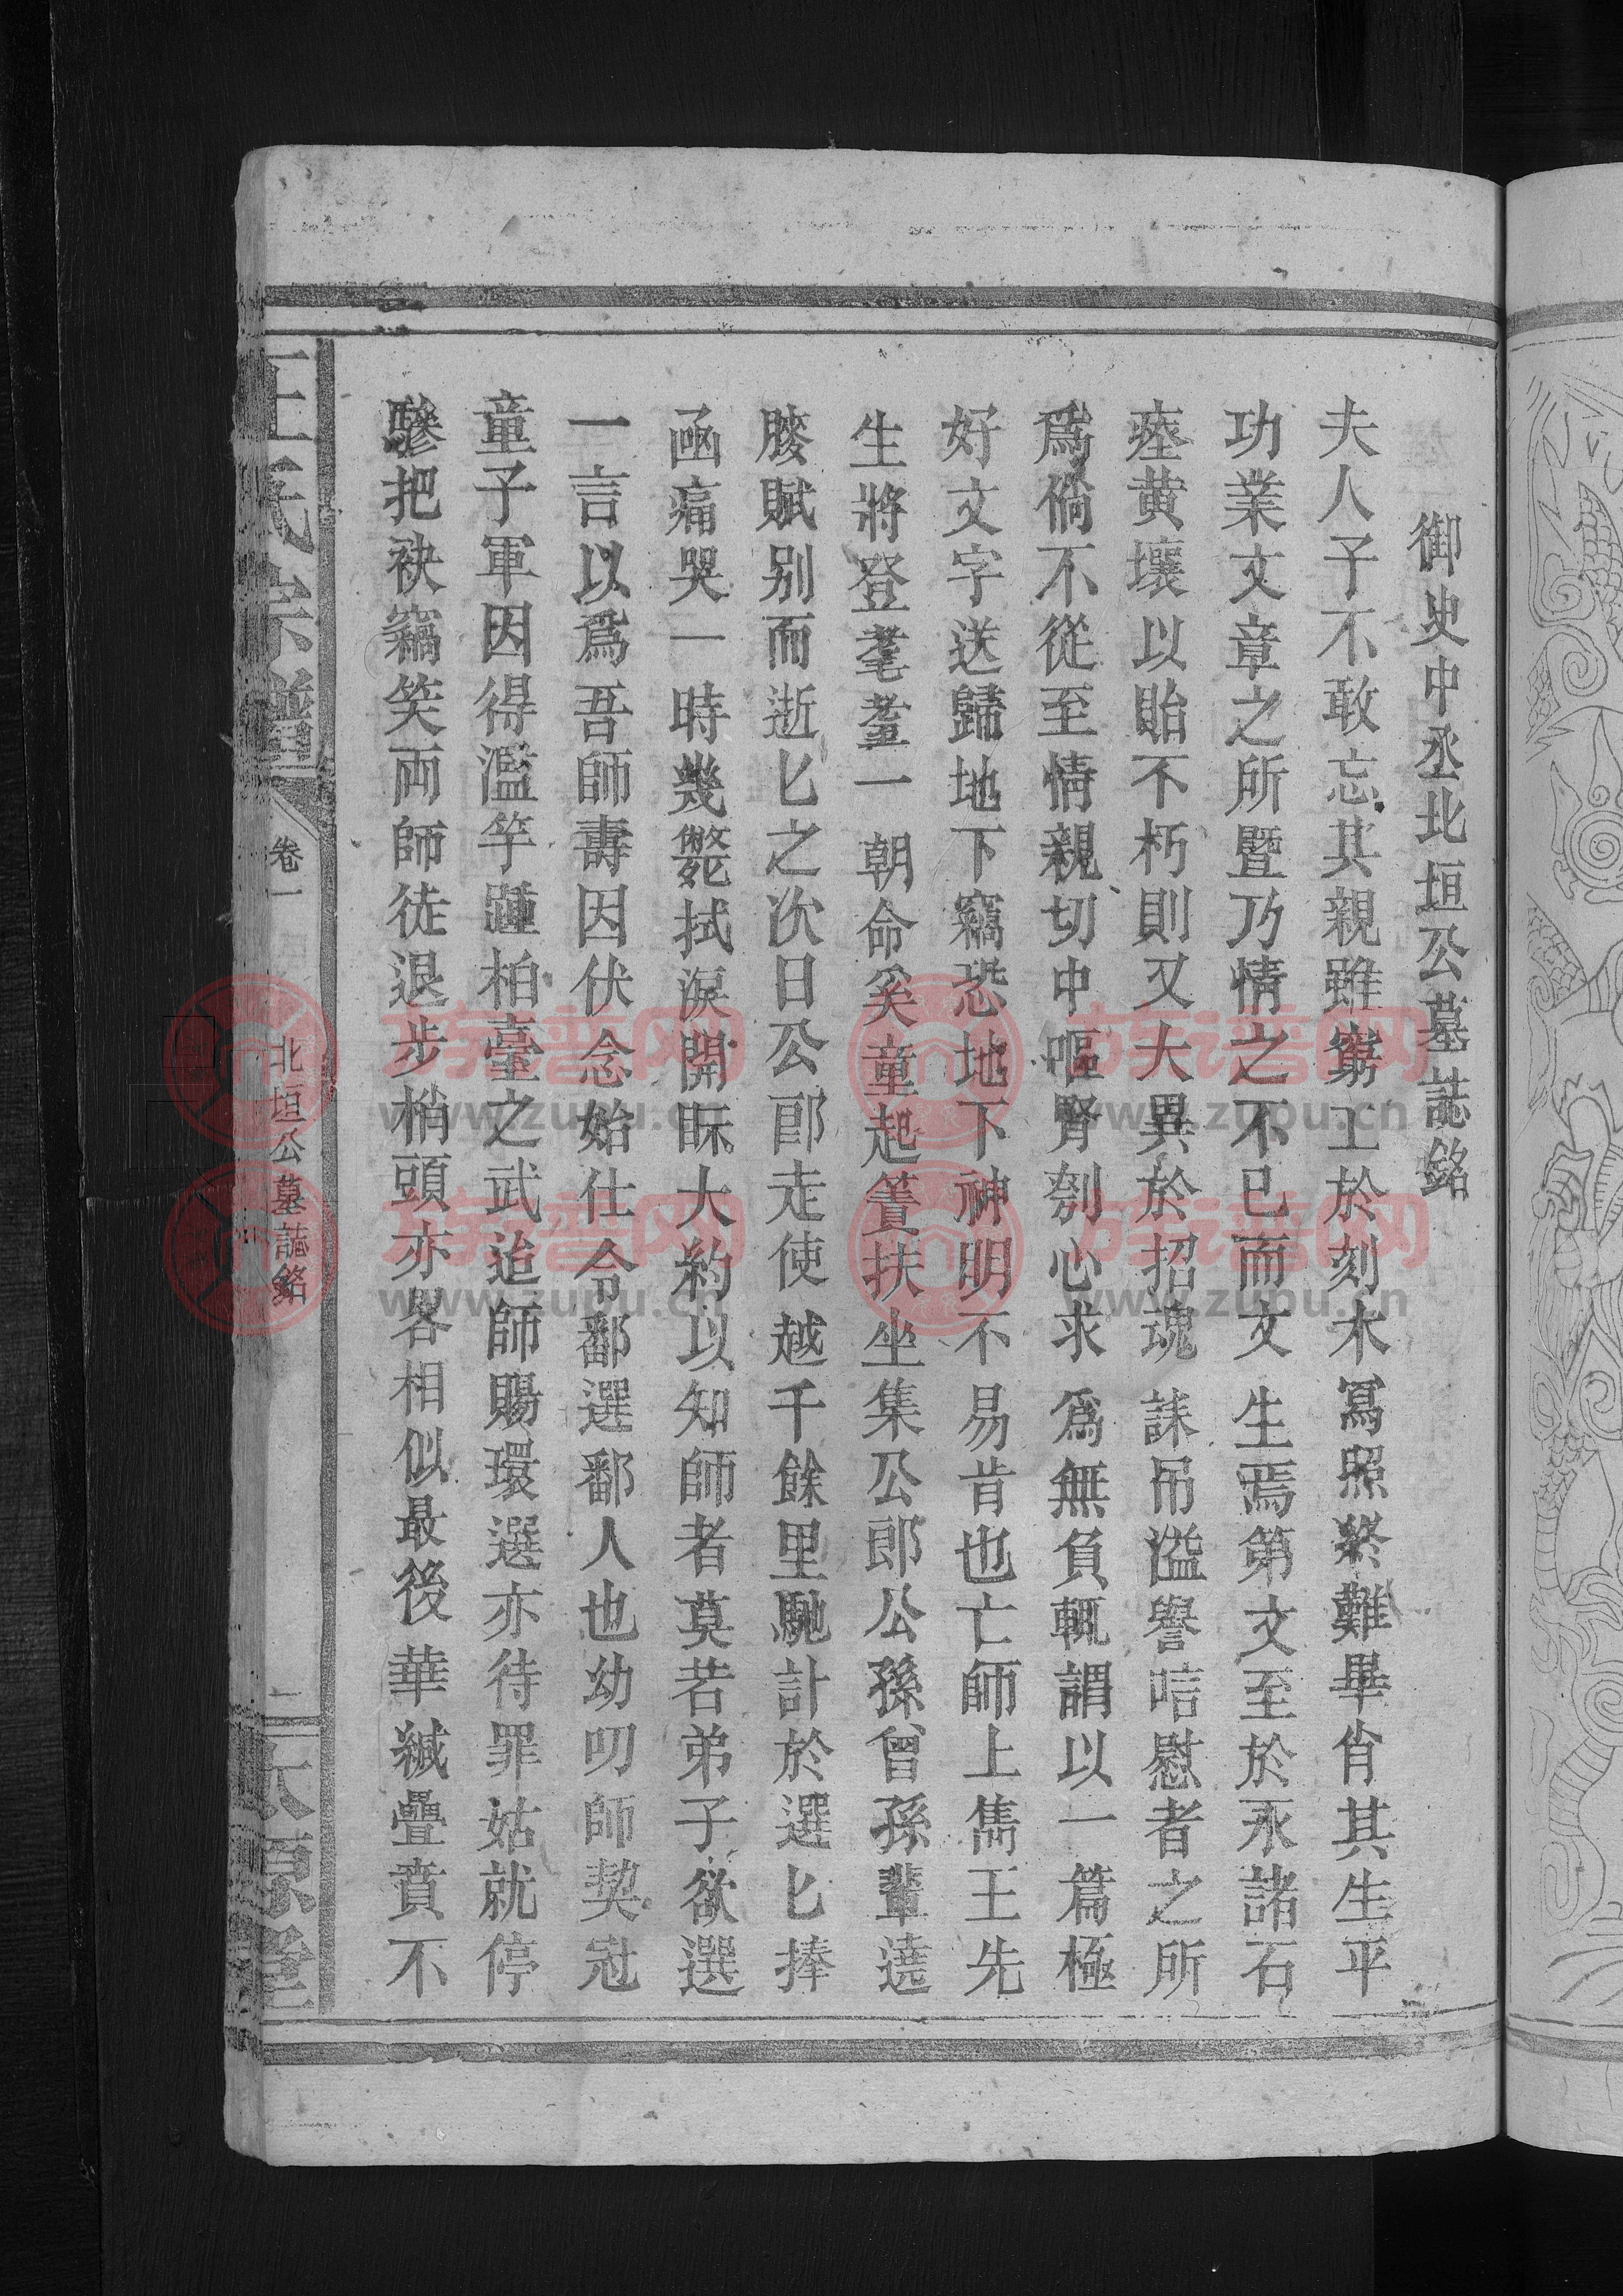 御史中丞北垣公墓誌銘
夫人子不敢忘其親雖窮工於刻木冩照終難畢肖其生平
功業文章之所暨乃情之不已而文生焉第文至於永諸石
瘞黄壤以貽不朽則又大異於招魂誄吊溢譽唁慰者之所
爲倘不從至情親切中嘔腎刳心求爲無負輒謂以一篇極
好文字送歸地下竊恐地下神明不易肯也亡師上雋王先
生將登耄耋一朝命奚童起簀扶坐集公郎公孫曾孫輩遶
牀賦别而逝匕之次日公郎走使越千餘里馳計於選匕捧
凾痛哭一時幾斃拭淚開眎大約以知師者莫若弟子欲選
一言以爲吾師壽因伏念始仕令鄱選鄱人也幼叨師契冠
童子軍因得濫竽踵柏臺之武迨師賜環選亦待罪姑就停
驂把袂竊笑両師徒退步梢頭亦各相似最後華緘疊賁不
王氏宗譜
卷一
北垣公墓誌銘
二
太原堂
族谱网
www.zupu.cn
族谱网
www.zupu.cn
族谱网
www.zupu.cn
族谱网
www.zupu.cn